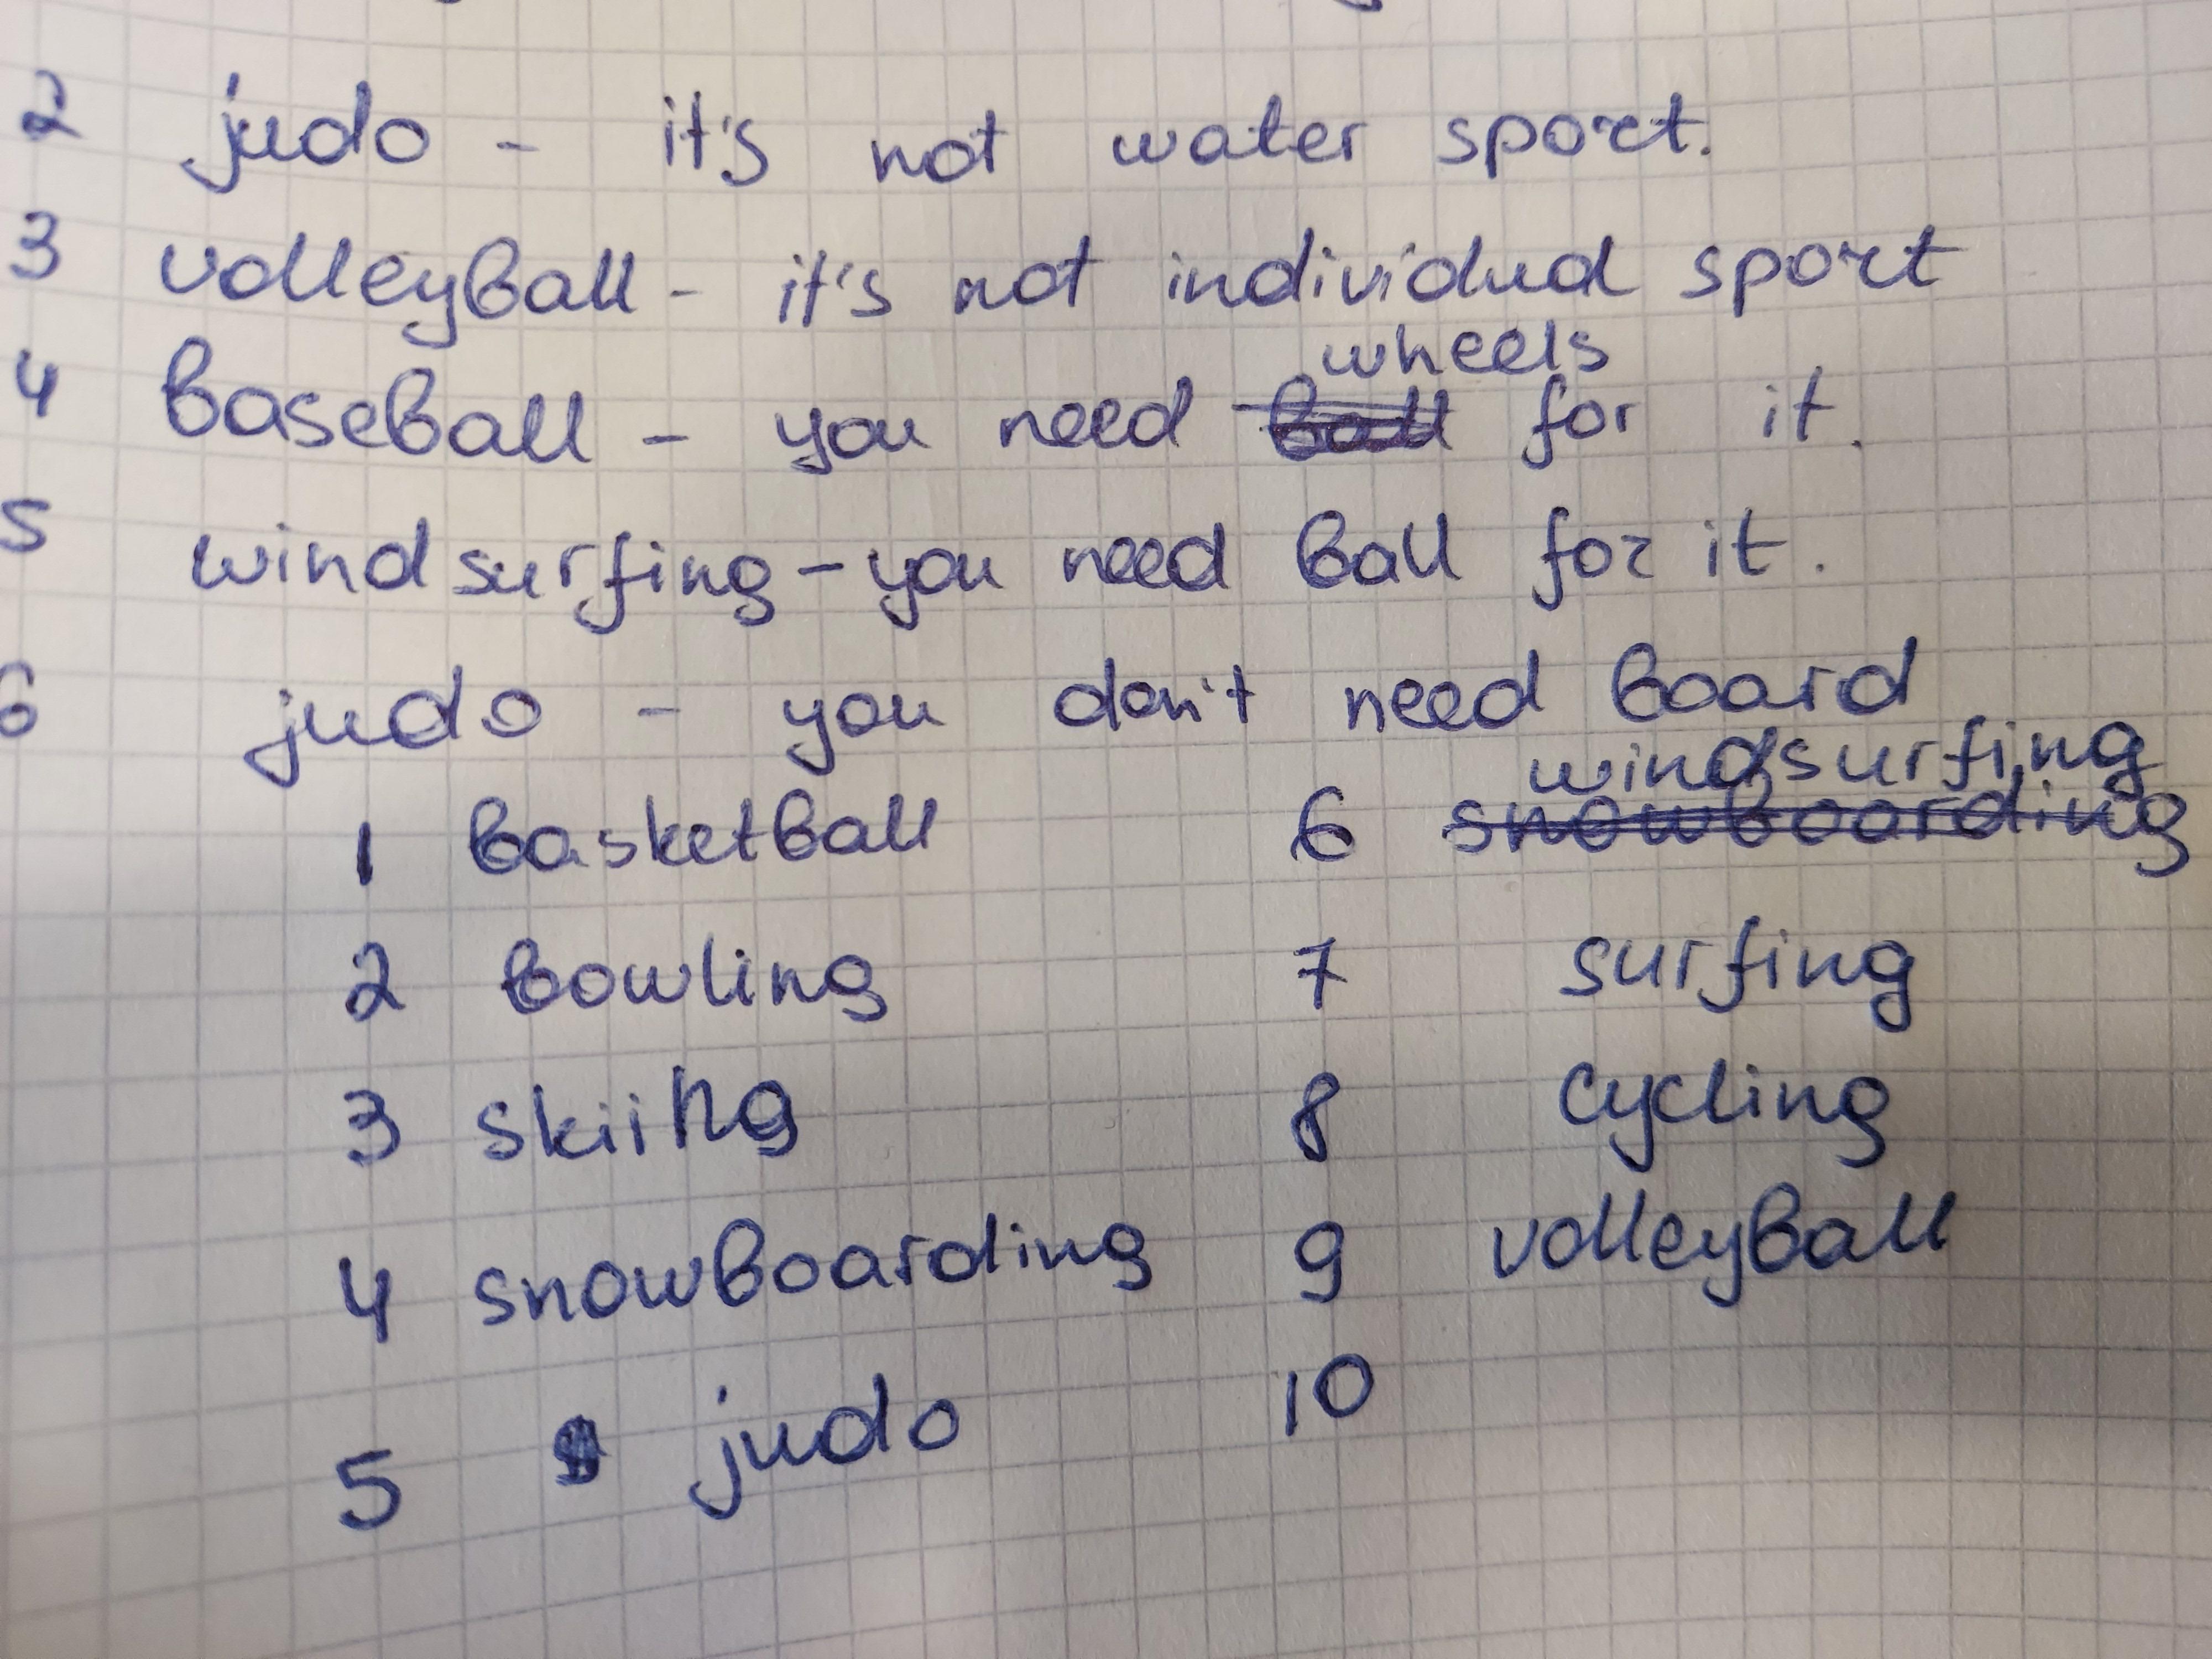 2 judo - it's not water sport.
3 volleyball - it's not individual sport
wheels
4 baseball - you need ball for it.
5 windsurfing - you need ball for it.
6 judo - you don't need board
windsurfing
1 basketball 6 snowboarding
2 bowling 7 surfing
3 skiing 8 cycling
4 snowboarding 9 volleyball
5 judo 10